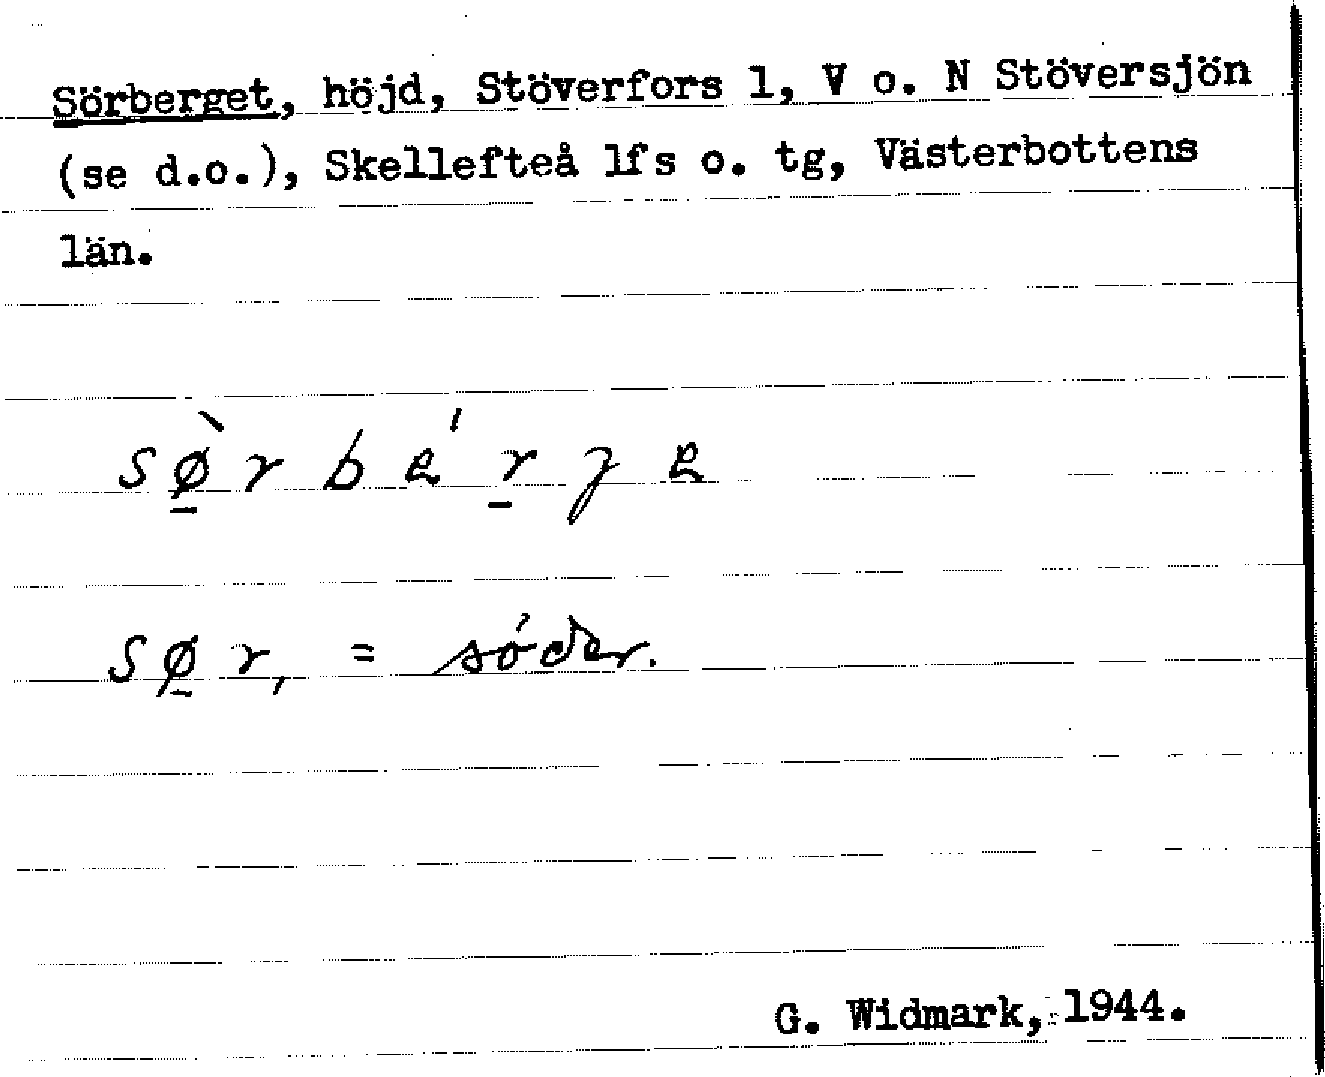 Sörberget, höjd, Stöverfors 1, V o. N Stöversjön
(se d.o.), Skellefteå lfs o. tg, Västerbottens
län.
sø̠̀rbe̍r̠ɟe
sø̠r, = söder.
G. Widmark, 1944.